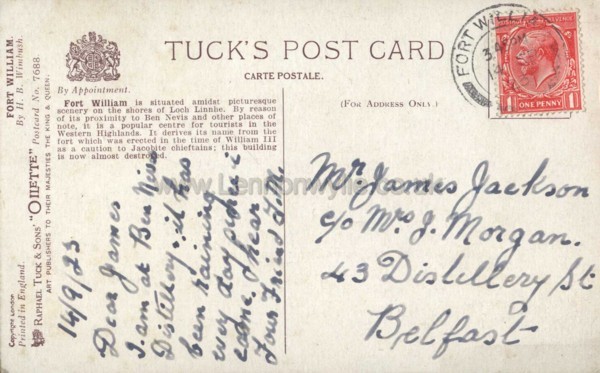 FORT WILLIAM.
By H. B. Wimbush.
RAPHAEL TUCK & SONS' "OILETTE" Postcard No. 7688.
ART PUBLISHERS TO THEIR MAJESTIES THE KING & QUEEN.
Copyright London
Printed in England.
By Appointment.
TUCK'S POST CARD
CARTE POSTALE.
(FOR ADDRESS ONLY.)
Fort William is situated amidst picturesque
scenery on the shores of Loch Linnhe. By reason
of its proximity to Ben Nevis and other places of
note, it is a popular centre for tourists in the
Western Highlands. It derives its name from the
fort which was erected in the time of William III
as a caution to Jacobite chieftains; this building
is now almost destroyed.
14/9/23
Dear James
I am at Ben Niss
Distillery it has
been raining
every day when i
come I hear
Your Friend
Mr James Jackson
c/o Mrs J. Morgan.
43 Distillery St
Belfast
FORT WILLIAM
POSTAGE REVENUE
ONE PENNY
1 1